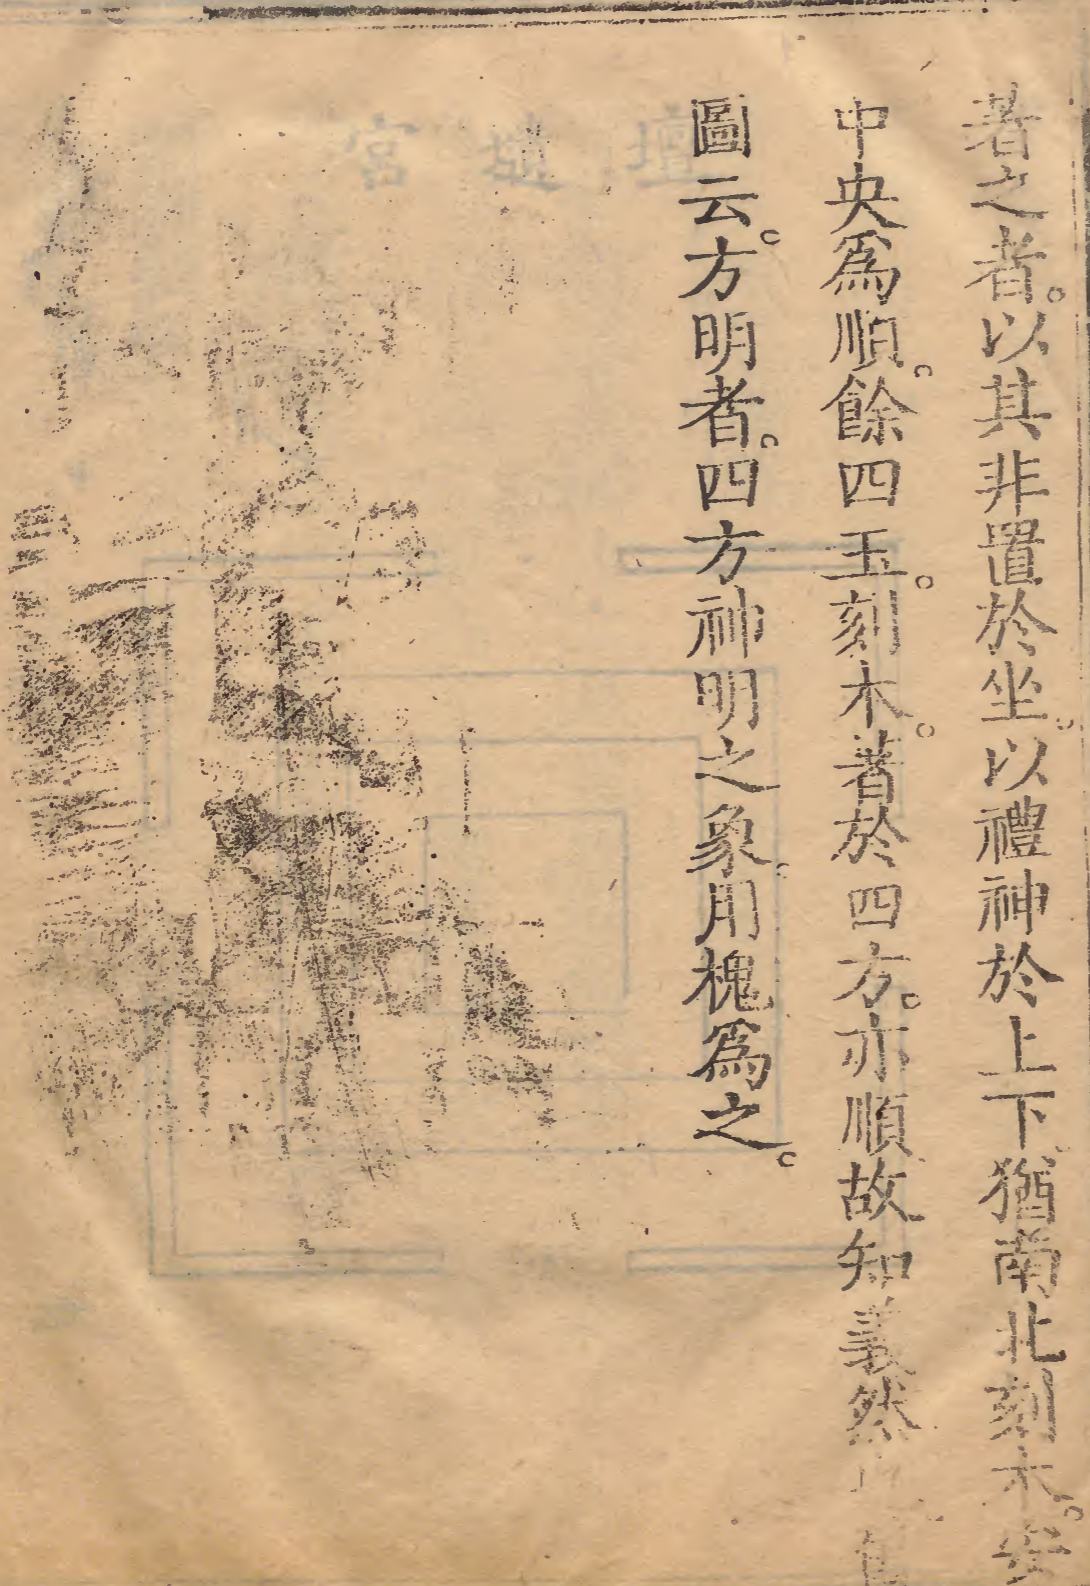 著之者。以其非置於坐。以禮神於上下。猶南北刻木。安
中央爲順。餘四玉。刻木。著於四方。亦順故知義然
圖云。方明者。四方神明之象。用槐爲之。
壇壝宮